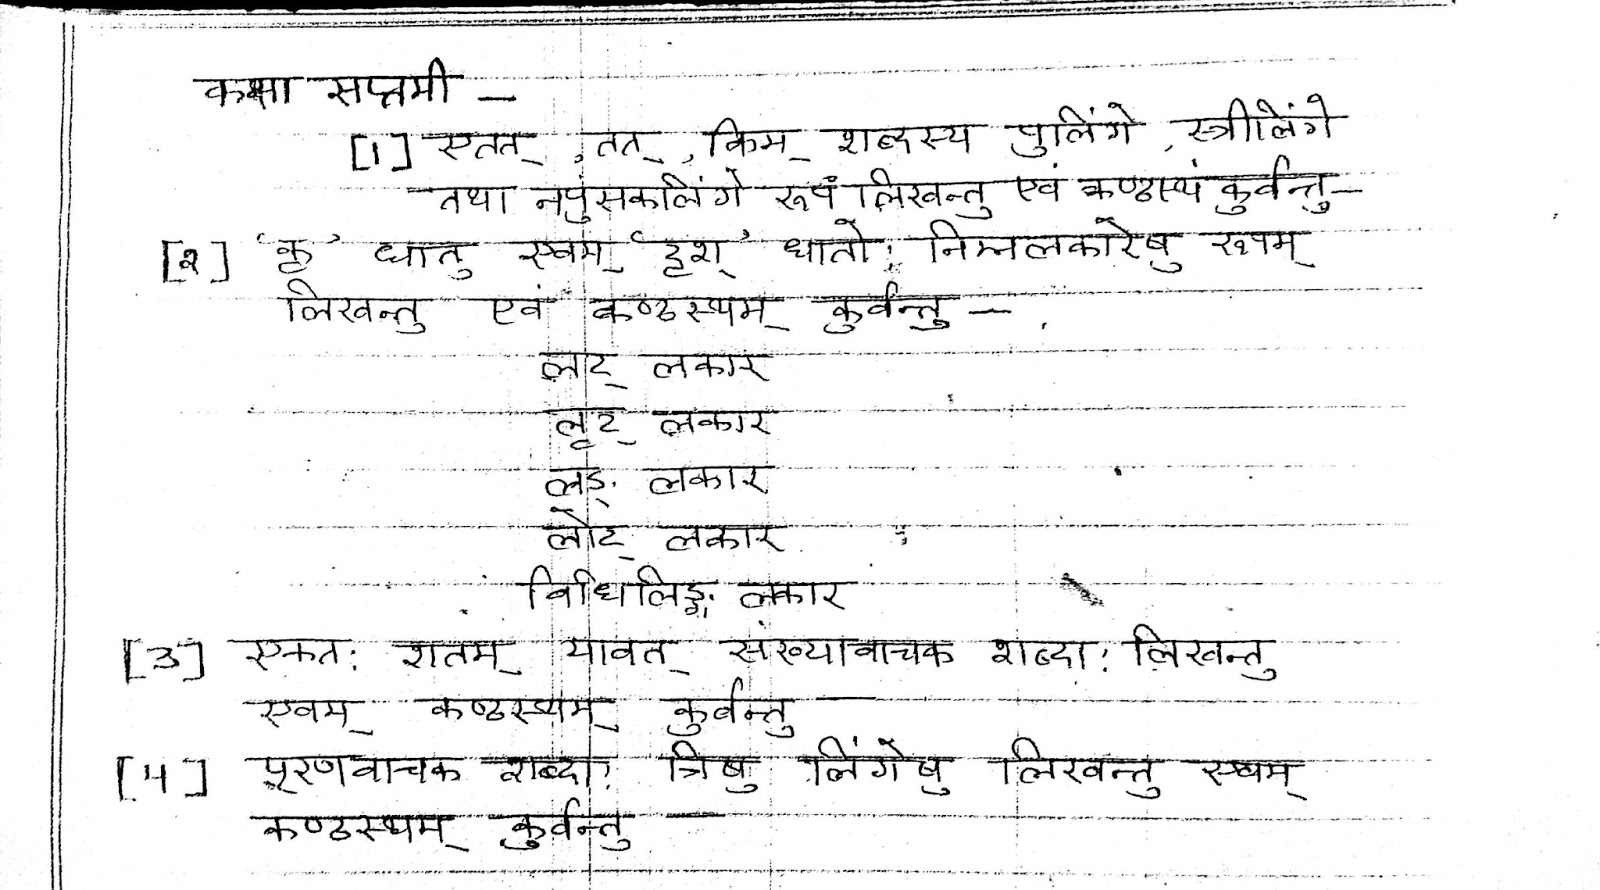 कक्षा सप्तमी —
[1] एतत्, तत्, किम् शब्दस्य पुलिंगे, स्त्रीलिंगे
तथा नपुंसकलिंगे रूपं लिखन्तु एवं कण्ठस्थं कुर्वन्तु—
[२] ‘कृ’ धातु एवम् ‘दृश्’ धातोः निम्नलकारेषु रूपम्
लिखन्तु एवं कण्ठस्थम् कुर्वन्तु —
लट् लकार
लृट् लकार
लङ् लकार
लोट् लकार
विधिलिङ्ग लकार
[3] एकतः शतम् यावत् संख्यावाचक शब्दाः लिखन्तु
एवम् कण्ठस्थम् कुर्वन्तु —
[4] पूरणवाचक शब्दाः त्रिषु लिंगेषु लिखन्तु एवम्
कण्ठस्थम् कुर्वन्तु —